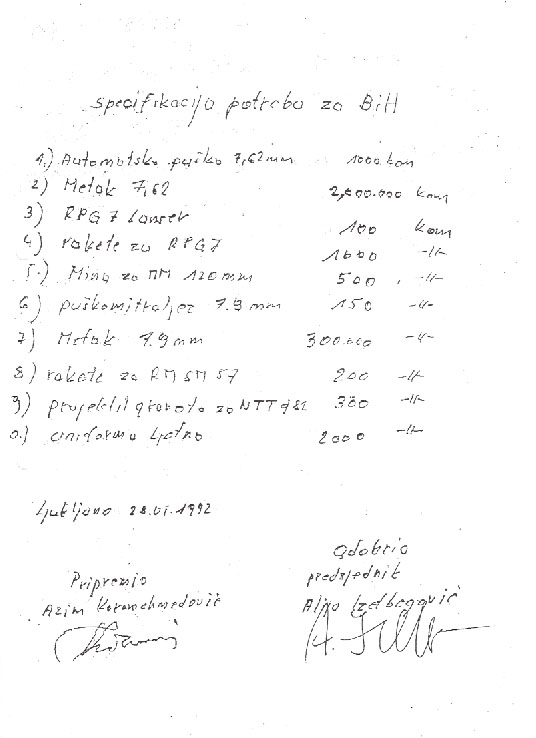 specifikacija potreba za BiH
1.) Automatska puška 7,62mm 1000 kom
2) Metak 7,62 2,000.000 kom
3) RPG7 Lanser 100 kom
4) rakete za RPG7 1000 -11-
5.) Mina za MM 120mm 500 -11-
6) puškomitraljez 7.9 mm 150 -11-
7) Metak 7.9 mm 300.000 -11-
8) rakete za RM 57 200 -11-
9) projektil granata za NTT 82 380 -11-
0.) uniforma ljetna 2000 -11-
Ljubljana 28.01.1992
Odobrio
Pripremio predsjednik
Azim Karamehmedović Alija Izetbegović